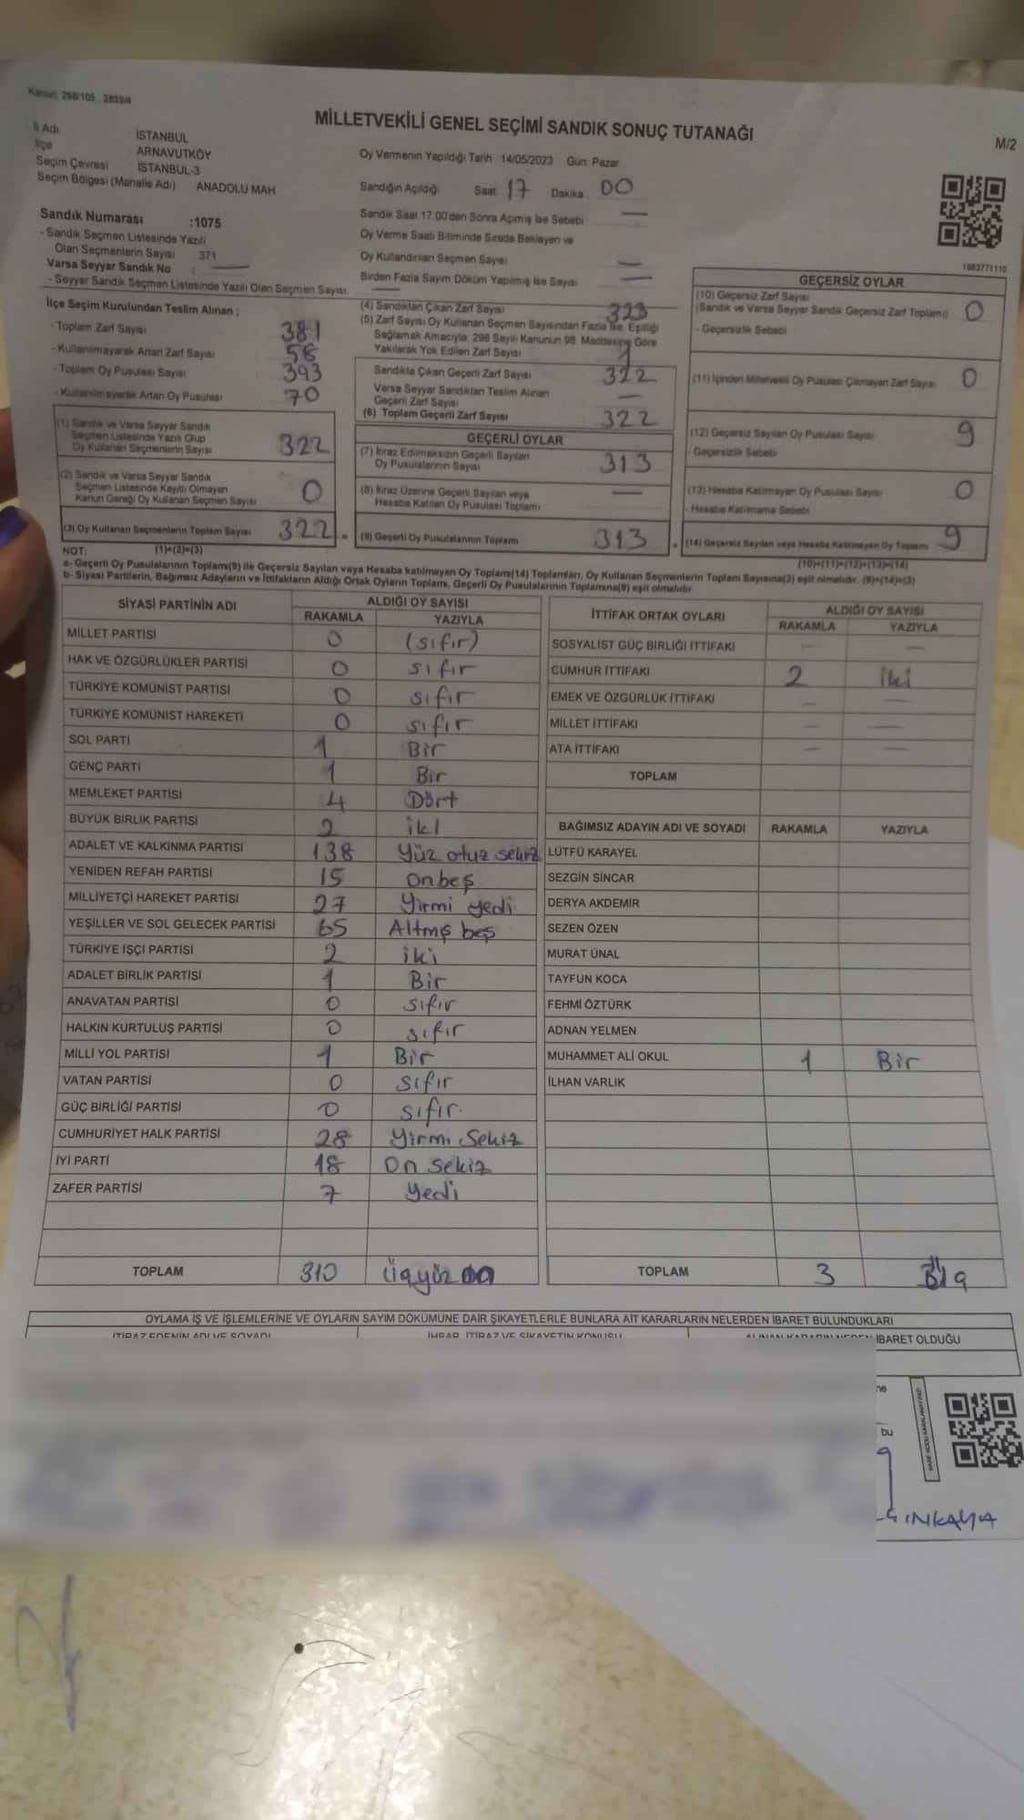 Kanun: 298/105 2839/4
MİLLETVEKİLİ GENEL SEÇİMİ SANDIK SONUÇ TUTANAĞI
M/2
İl Adı İSTANBUL
İlçe ARNAVUTKÖY
Seçim Çevresi İSTANBUL-3
Seçim Bölgesi (Mahalle Adı) ANADOLU MAH
Oy Vermenin Yapıldığı Tarih 14/05/2023 Gün: Pazar
Sandığın Açıldığı Saat 17 Dakika 00
Sandık Saat 17:00'den Sonra Açılmış İse Sebebi —
Oy Verme Saati Bitiminde Sırada Bekleyen ve
Oy Kullandırılan Seçmen Sayısı —
Birden Fazla Sayım Döküm Yapılmış İse Sayısı —
Sandık Numarası :1075
- Sandık Seçmen Listesinde Yazılı
Olan Seçmenlerin Sayısı 371
Varsa Seyyar Sandık No : —
- Seyyar Sandık Seçmen Listesinde Yazılı Olan Seçmen Sayısı: —
İlçe Seçim Kurulundan Teslim Alınan ;
- Toplam Zarf Sayısı 381
- Kullanılmayarak Artan Zarf Sayısı 58
- Toplam Oy Pusulası Sayısı 393
- Kullanılmayarak Artan Oy Pusulası 70
(1) Sandık ve Varsa Seyyar Sandık
Seçmen Listesinde Yazılı Olup
Oy Kullanan Seçmenlerin Sayısı 322
(2) Sandık ve Varsa Seyyar Sandık
Seçmen Listesinde Kayıtlı Olmayan
Kanun Gereği Oy Kullanan Seçmen Sayısı 0
(3) Oy Kullanan Seçmenlerin Toplam Sayısı 322
(1)+(2)=(3)
(4) Sandıktan Çıkan Zarf Sayısı 323
(5) Zarf Sayısı Oy Kullanan Seçmen Sayısından Fazla İse, Eşitliği
Sağlamak Amacıyla, 298 Sayılı Kanunun 98. Maddesine Göre
Yakılarak Yok Edilen Zarf Sayısı 1
Sandıkta Çıkan Geçerli Zarf Sayısı 322
Varsa Seyyar Sandıktan Teslim Alınan
Geçerli Zarf Sayısı —
(6) Toplam Geçerli Zarf Sayısı 322
GEÇERLİ OYLAR
(7) İtiraz Edilmeksizin Geçerli Sayılan
Oy Pusulalarının Sayısı 313
(8) İtiraz Üzerine Geçerli Sayılan veya
Hesaba Katılan Oy Pusulası Toplamı —
(9) Geçerli Oy Pusulalarının Toplamı 313
GEÇERSİZ OYLAR
(10) Geçersiz Zarf Sayısı
(Sandık ve Varsa Seyyar Sandık Geçersiz Zarf Toplamı) 0
- Geçersizlik Sebebi
(11) İçinden Milletvekili Oy Pusulası Çıkmayan Zarf Sayısı 0
(12) Geçersiz Sayılan Oy Pusulası Sayısı 9
- Geçersizlik Sebebi
(13) Hesaba Katılmayan Oy Pusulası Sayısı 0
- Hesaba Katılmama Sebebi
(14) Geçersiz Sayılan veya Hesaba Katılmayan Oy Toplamı 9
(10)+(11)+(12)+(13)=(14)
NOT:
a- Geçerli Oy Pusulalarının Toplamı(9) ile Geçersiz Sayılan veya Hesaba katılmayan Oy Toplamı(14) Toplamları, Oy Kullanan Seçmenlerin Toplam Sayısına(3) eşit olmalıdır. (9)+(14)=(3)
b- Siyasi Partilerin, Bağımsız Adayların ve İttifakların Aldığı Ortak Oyların Toplamı, Geçerli Oy Pusulalarının Toplamına(9) eşit olmalıdır.
SİYASİ PARTİNİN ADI ALDIĞI OY SAYISI
RAKAMLA YAZIYLA
MİLLET PARTİSİ 0 (sıfır)
HAK VE ÖZGÜRLÜKLER PARTİSİ 0 sıfır
TÜRKİYE KOMÜNİST PARTİSİ 0 sıfır
TÜRKİYE KOMÜNİST HAREKETİ 0 sıfır
SOL PARTİ 1 Bir
GENÇ PARTİ 1 Bir
MEMLEKET PARTİSİ 4 Dört
BÜYÜK BİRLİK PARTİSİ 2 iki
ADALET VE KALKINMA PARTİSİ 138 Yüz otuz sekiz
YENİDEN REFAH PARTİSİ 15 onbeş
MİLLİYETÇİ HAREKET PARTİSİ 27 Yirmi yedi
YEŞİLLER VE SOL GELECEK PARTİSİ 65 Altmış beş
TÜRKİYE İŞÇİ PARTİSİ 2 iki
ADALET BİRLİK PARTİSİ 1 Bir
ANAVATAN PARTİSİ 0 sıfır
HALKIN KURTULUŞ PARTİSİ 0 sıfır
MİLLİ YOL PARTİSİ 1 Bir
VATAN PARTİSİ 0 sıfır
GÜÇ BİRLİĞİ PARTİSİ 0 sıfır
CUMHURİYET HALK PARTİSİ 28 Yirmi Sekiz
İYİ PARTİ 18 On sekiz
ZAFER PARTİSİ 7 Yedi
TOPLAM 310 Üçyüz on
İTTİFAK ORTAK OYLARI ALDIĞI OY SAYISI
RAKAMLA YAZIYLA
SOSYALİST GÜÇ BİRLİĞİ İTTİFAKI — —
CUMHUR İTTİFAKI 2 iki
EMEK VE ÖZGÜRLÜK İTTİFAKI — —
MİLLET İTTİFAKI — —
ATA İTTİFAKI — —
TOPLAM
BAĞIMSIZ ADAYIN ADI VE SOYADI RAKAMLA YAZIYLA
LÜTFÜ KARAYEL
SEZGİN SİNCAR
DERYA AKDEMİR
SEZEN ÖZEN
MURAT ÜNAL
TAYFUN KOCA
FEHMİ ÖZTÜRK
ADNAN YELMEN
MUHAMMET ALİ OKUL 1 Bir
İLHAN VARLIK
TOPLAM 3
OYLAMA İŞ VE İŞLEMLERİNE VE OYLARIN SAYIM DÖKÜMÜNE DAİR ŞİKAYETLERLE BUNLARA AİT KARARLARIN NELERDEN İBARET BULUNDUKLARI
İTİRAZ EDENİN ADI VE SOYADI İHBAR, İTİRAZ VE ŞİKAYETİN KONUSU ALINAN KARARIN NEDEN İBARET OLDUĞU
bu